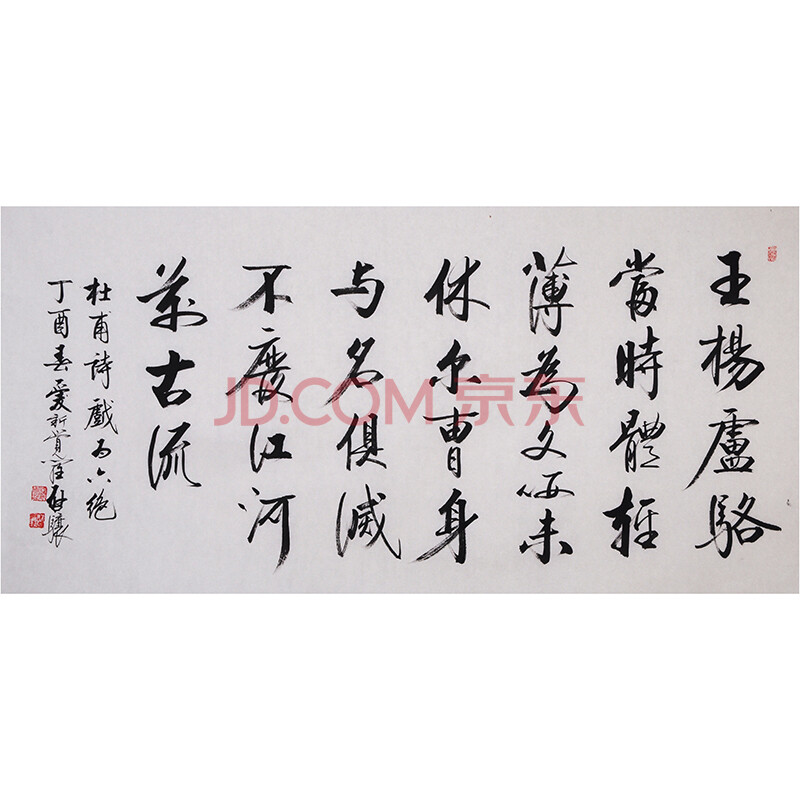 王楊盧駱
當時體輕
薄為文哂未
休尔曹身
与名俱滅
不廢江河
萬古流
杜甫詩戲为六絕
丁酉春愛新覺羅啟驤
JD.COM 京东